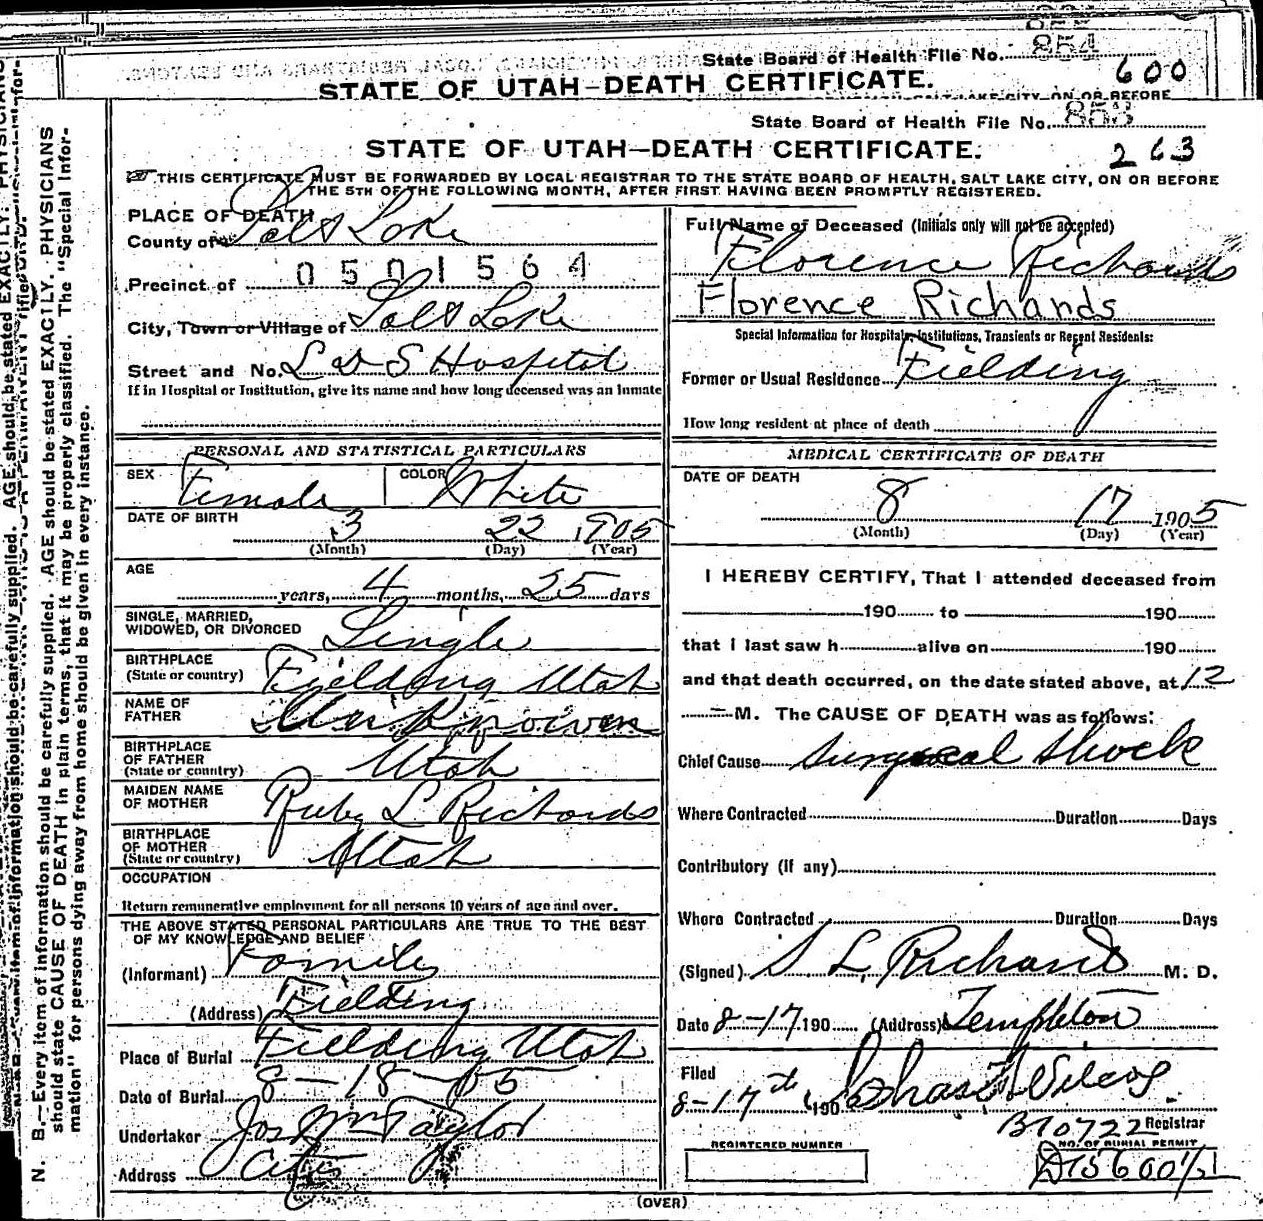 State Board of Health File No. 854
600
STATE OF UTAH—DEATH CERTIFICATE.
State Board of Health File No. 853
STATE OF UTAH—DEATH CERTIFICATE.
263
THIS CERTIFICATE MUST BE FORWARDED BY LOCAL REGISTRAR TO THE STATE BOARD OF HEALTH, SALT LAKE CITY, ON OR BEFORE
THE 5TH OF THE FOLLOWING MONTH, AFTER FIRST HAVING BEEN PROMPTLY REGISTERED.
PLACE OF DEATH
County of Salt Lake
0501564
Precinct of
City, Town or Village of Salt Lake
Street and No. L D S Hospital
If in Hospital or Institution, give its name and how long deceased was an inmate
Full Name of Deceased (Initials only will not be accepted)
Florence Richards
Florence Richards
Special Information for Hospitals, Institutions, Transients or Recent Residents:
Former or Usual Residence Fielding
How long resident at place of death
PERSONAL AND STATISTICAL PARTICULARS
SEX Female COLOR White
DATE OF BIRTH 3 22 1905
(Month) (Day) (Year)
AGE
years, 4 months, 25 days
SINGLE, MARRIED,
WIDOWED, OR DIVORCED Single
BIRTHPLACE
(State or country) Fielding Utah
NAME OF
FATHER Unknown
BIRTHPLACE
OF FATHER
(State or country) Utah
MAIDEN NAME
OF MOTHER Ruby L Richards
BIRTHPLACE
OF MOTHER
(State or country) Utah
OCCUPATION
Return remunerative employment for all persons 10 years of age and over.
THE ABOVE STATED PERSONAL PARTICULARS ARE TRUE TO THE BEST
OF MY KNOWLEDGE AND BELIEF
(Informant) Family
(Address) Fielding
Place of Burial Fielding Utah
Date of Burial 8-18-05
Undertaker Jos Wm Taylor
Address City
MEDICAL CERTIFICATE OF DEATH
DATE OF DEATH
8 17 1905
(Month) (Day) (Year)
I HEREBY CERTIFY, That I attended deceased from
190 to 190
that I last saw h alive on 190
and that death occurred, on the date stated above, at 12
M. The CAUSE OF DEATH was as follows:
Chief Cause Surgical Shock
Where Contracted Duration Days
Contributory (if any)
Where Contracted Duration Days
(Signed) S. L. Richards M. D.
Date 8-17 190 (Address) Templeton
Filed
8-17th 190
Registrar
B10722
REGISTERED NUMBER
NO. OF BURIAL PERMIT
N. B.—Every item of information should be carefully supplied. AGE should be stated EXACTLY. PHYSICIANS
should state CAUSE OF DEATH in plain terms, that it may be properly classified. The "Special Infor-
mation" for persons dying away from home should be given in every instance.
(OVER)